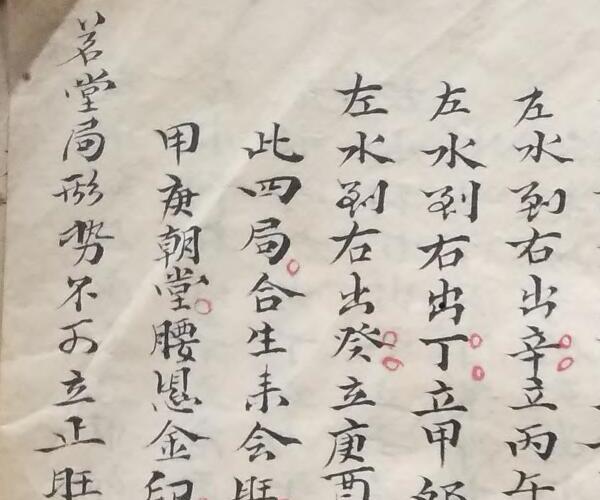 左水到右出辛立丙午
左水到右出丁立甲卯
左水到右出癸立庚酉
此四局合生来会旺
甲庚朝堂腰悬金印
若堂局形势不可立正旺